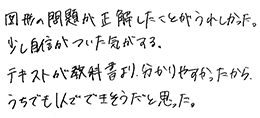 図形の問題が正解したことがうれしかった。
少し自信がついた気がする。
テキストが教科書より分かりやすかったから、
うちでも1人でできそうだと思った。